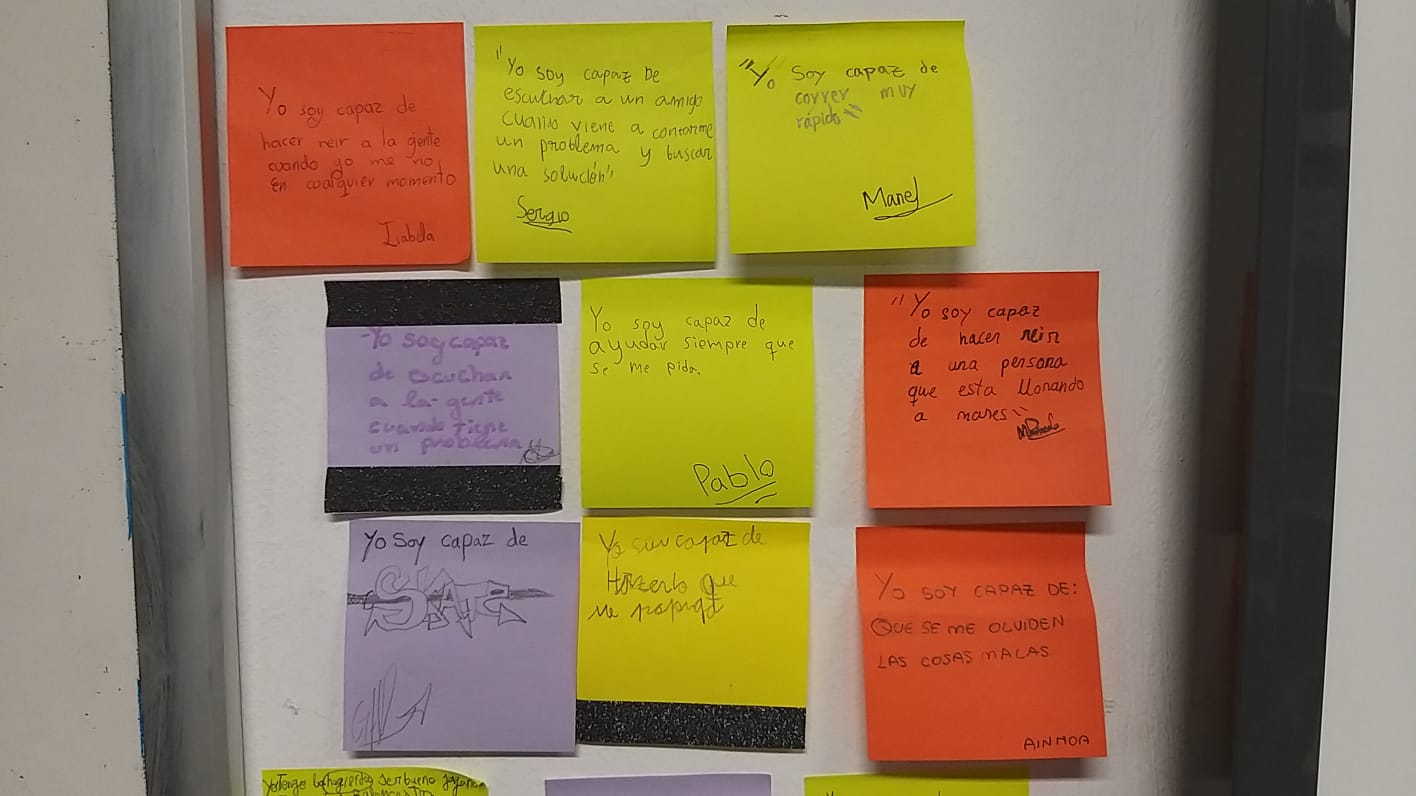 Yo soy capaz de
hacer reir a la gente
cuando yo me rio,
En cualquier momento
Isabela
"Yo soy capaz De
escuchar a un amigo
cuando viene a contarme
un problema y buscar
una solución"
Sergio
"Yo Soy capaz de
correr muy
rápido"
Manel
-Yo soy capaz
de escuchar
a la gente
cuando tiene
un problema
Yo soy capaz de
ayudar siempre que
se me pida.
Pablo
"Yo soy capaz
de hacer reir
a una persona
que esta llorando
a mares"
Yo Soy capaz de
SKATE
Yo soy capaz de
Hacerlo que
me
YO SOY CAPAZ DE:
QUE SE ME OLVIDEN
LAS COSAS MALAS
AINHOA